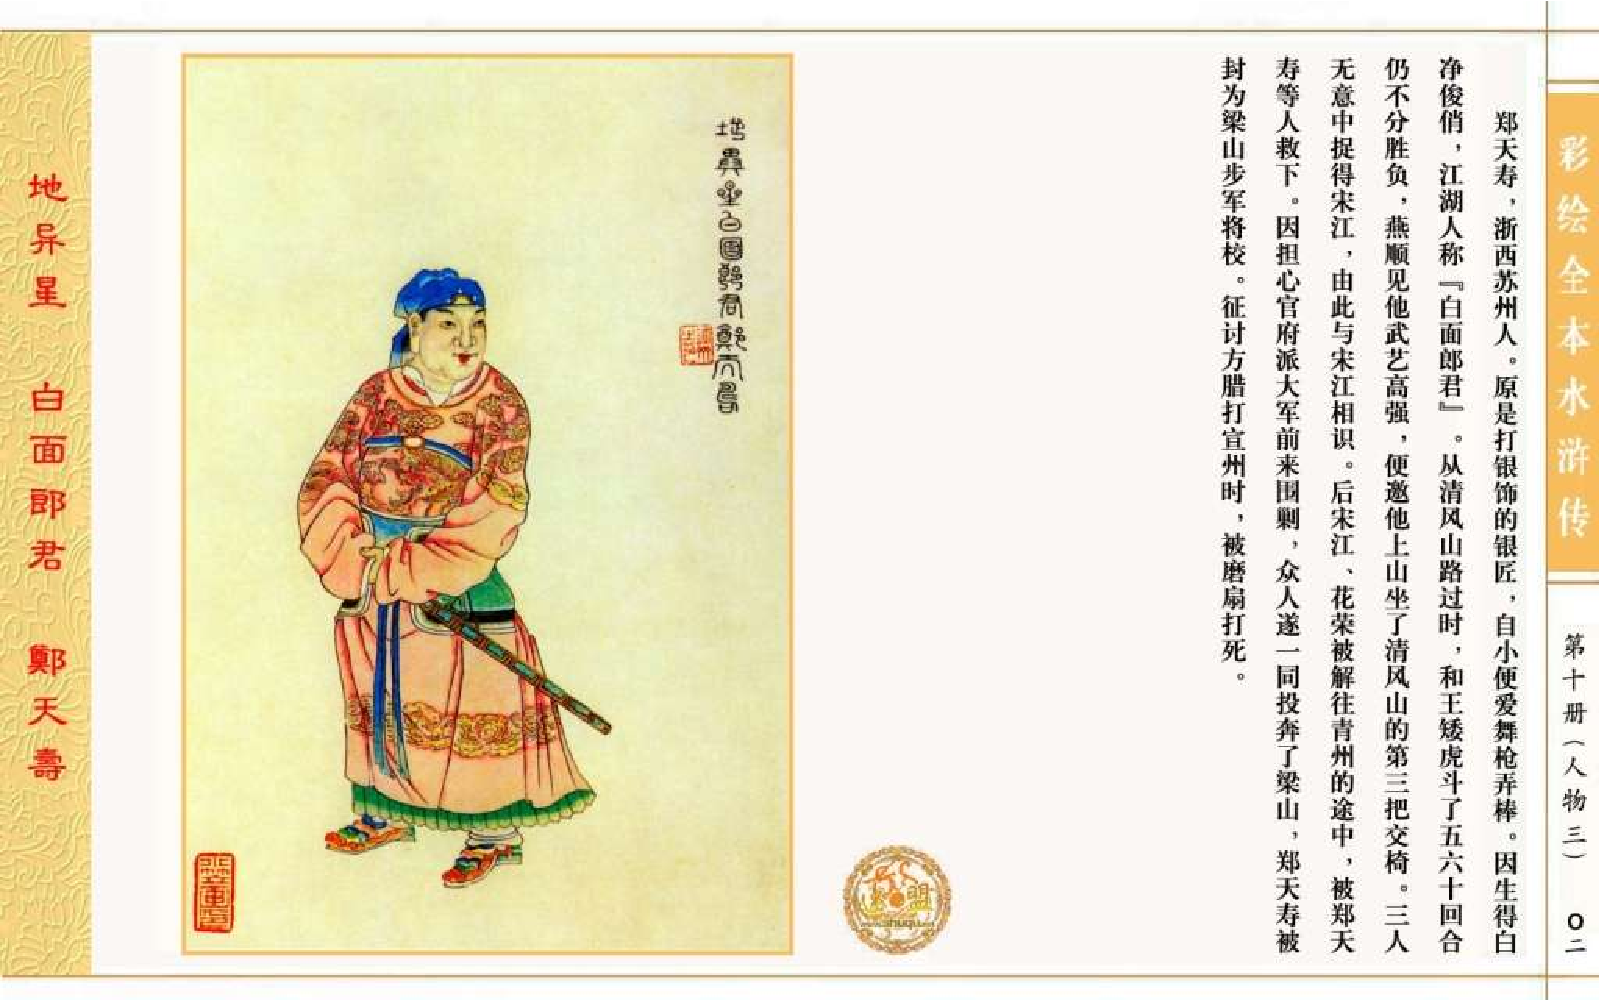 彩绘全本水浒传
第十册（人物三）
〇二
郑天寿，浙西苏州人。原是打银饰的银匠，自小便爱舞枪弄棒。因生得白
净俊俏，江湖人称『白面郎君』。从清风山路过时，和王矮虎斗了五六十回合
仍不分胜负，燕顺见他武艺高强，便邀他上山坐了清风山的第三把交椅。三人
无意中捉得宋江，由此与宋江相识。后宋江、花荣被解往青州的途中，被郑天
寿等人救下。因担心官府派大军前来围剿，众人遂一同投奔了梁山，郑天寿被
封为梁山步军将校。征讨方腊打宣州时，被磨扇打死。
地異星白面郎君鄭天壽
地异星 白面郎君 鄭天壽